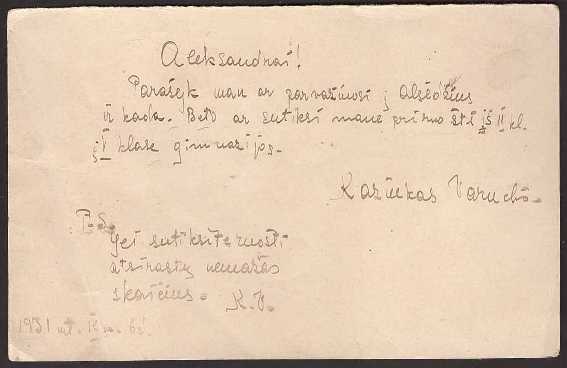 Aleksandrai!
Parašyk man ar parvažiuosi į Alsėdžius
ir kada. Beto ar sutiksi mane priruošti iš II kl.
į V klasę gimnazijos.
Kaziukas
P.S.
Jei sutiksite ruošti
atsirastų nemažas
skaičius. K.V.
1931 mt.